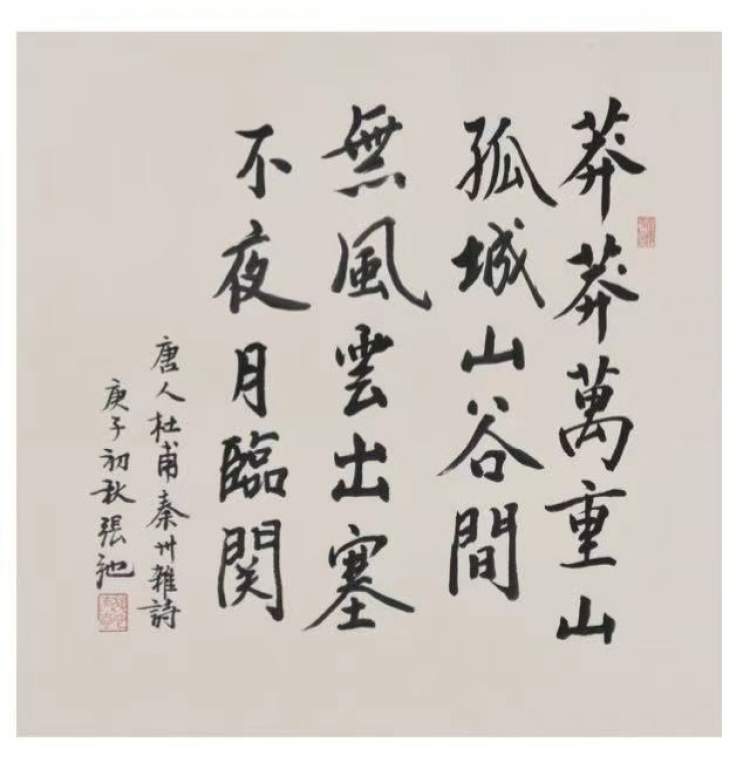 莽莽萬重山
孤城山谷間
無風雲出塞
不夜月臨関
唐人杜甫秦州雜詩
庚子初秋張池